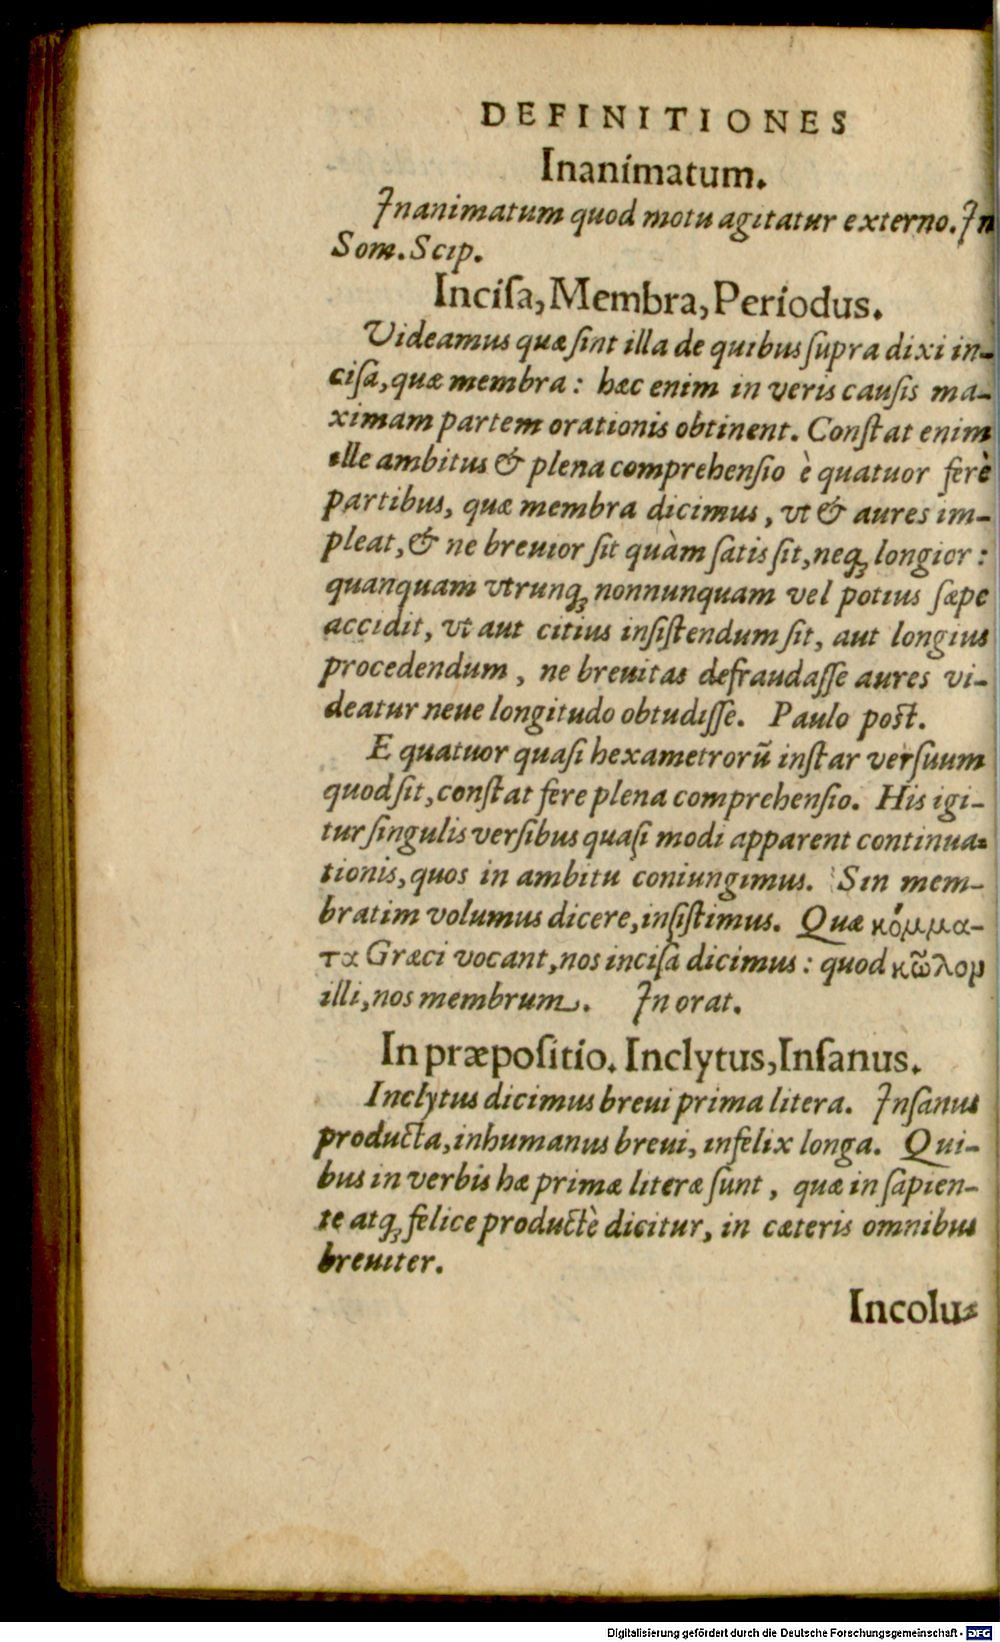 DEFINITIONES
Inanimatum.
Inanimatum quod motu agitatur externo. In
Som. Scip.
Inciſa, Membra, Periodus.
Videamus quæ ſint illa de quibus ſupra dixi in-
ciſa, quæ membra : hæc enim in veris cauſis ma-
ximam partem orationis obtinent. Conſtat enim
ille ambitus & plena comprehenſio è quatuor ferè
partibus, quæ membra dicimus, vt & aures im-
pleat, & ne breuior ſit quàm ſatis ſit, neqꝫ longior :
quanquam vtrunqꝫ nonnunquam vel potius ſæpe
accidit, vt aut citius inſiſtendum ſit, aut longius
procedendum, ne breuitas defraudaſſe aures vi-
deatur neue longitudo obtudiſſe. Paulo poſt.
E quatuor quaſi hexametrorũ inſtar verſuum
quod ſit, conſtat fere plena comprehenſio. His igi-
tur ſingulis verſibus quaſi modi apparent continua-
tionis, quos in ambitu coniungimus. Sin mem-
bratim volumus dicere, inſiſtimus. Quæ κόμμα-
τα Græci vocant, nos inciſa dicimus : quod κῶλον
illi, nos membrum. In orat.
In præpoſitio. Inclytus, Inſanus.
Inclytus dicimus breui prima litera. Inſanus
producta, inhumanus breui, infelix longa. Qui-
bus in verbis hæ primæ literæ ſunt, quæ in ſapien-
te atqꝫ felice productè dicitur, in cæteris omnibus
breuiter.
Incolu-
Digitalisierung gefördert durch die Deutsche Forschungsgemeinschaft - DFG